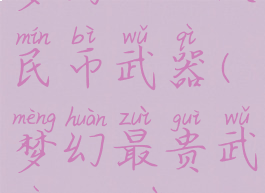 mín bì wǔ qì
民币武器(
mèng huàn zuì guì wǔ
梦幻最贵武